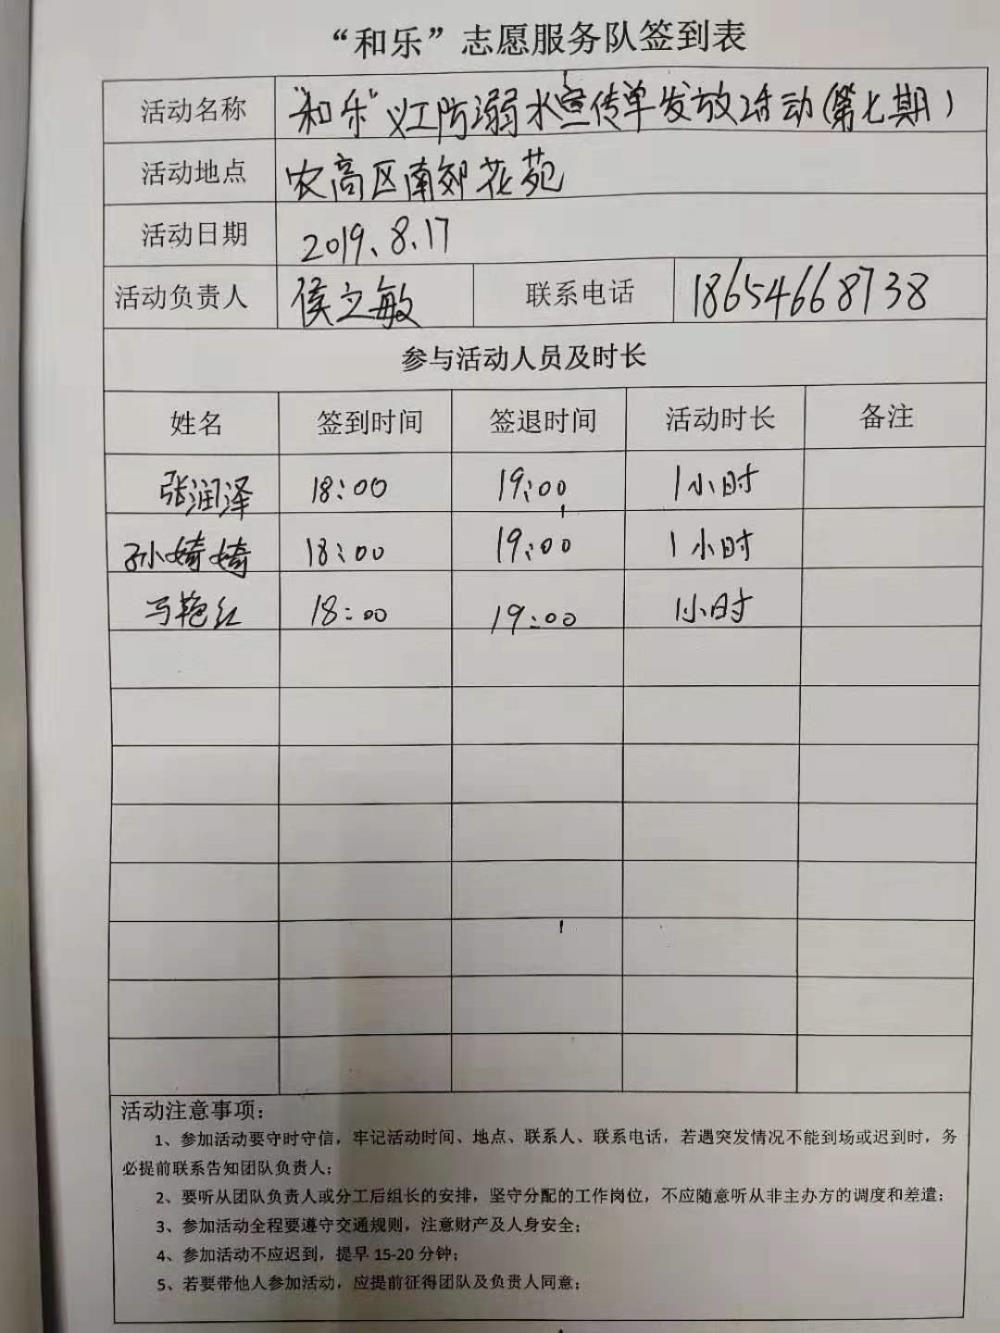 “和乐”志愿服务队签到表
活动名称 “和乐”义工防溺水宣传单发放活动(第七期)
活动地点 农高区南郊花苑
活动日期 2019、8、17
活动负责人 侯立敏 联系电话 18654668738
参与活动人员及时长
姓名 签到时间 签退时间 活动时长 备注
张润泽 18:00 19:00 1小时
孙婍婍 18:00 19:00 1小时
马艳红 18:00 19:00 1小时
活动注意事项:
1、参加活动要守时守信，牢记活动时间、地点、联系人、联系电话，若遇突发情况不能到场或迟到时，务
必提前联系告知团队负责人;
2、要听从团队负责人或分工后组长的安排，坚守分配的工作岗位，不应随意听从非主办方的调度和差遣;
3、参加活动全程要遵守交通规则，注意财产及人身安全;
4、参加活动不应迟到，提早 15-20 分钟;
5、若要带他人参加活动，应提前征得团队及负责人同意;